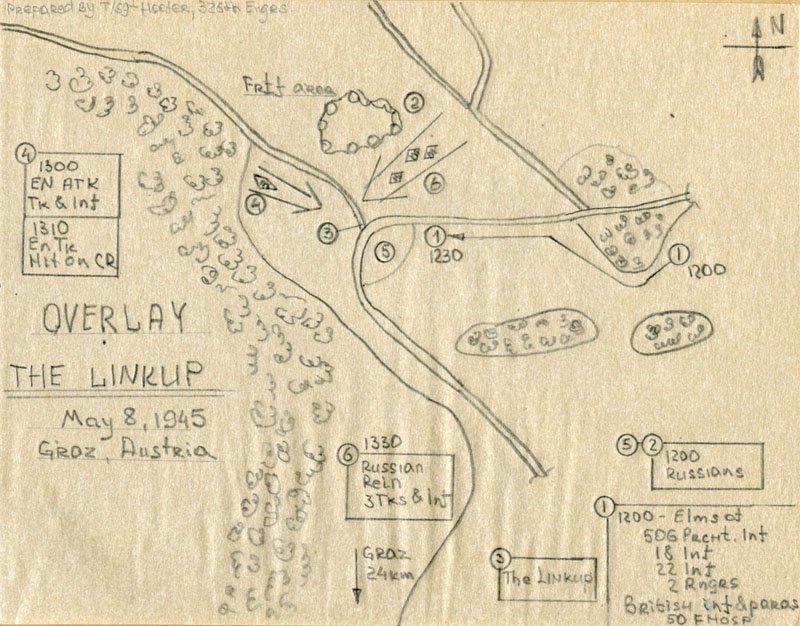 Prepared by T/Sg-Heefer, 326th Engrs
N
Frtf area
②
④
1300
EN ATK
Tk & Inf
1310
En Tk
Hit on CR
④
⑥
③
⑤
①
1230
①
1200
OVERLAY
THE LINKUP
May 8, 1945
Graz, Austria
⑥
1330
Russian
Rein
3 Tks & Inf
GRAZ
24km
⑤ ②
1200
Russians
③
The LINKUP
①
1200 - Elms of
506 Pacht. Inf
18 Inf
22 Inf
2 Rngrs
British inf & paras
50 FHOSP